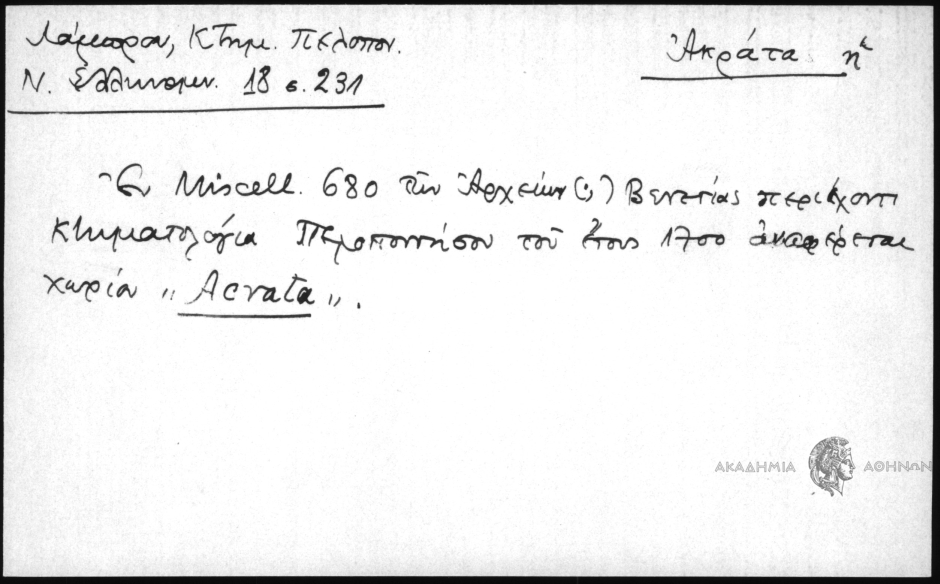 Λάμπρου, Κτημ. Πελοπον.
Ν. Ἑλληνομν. 18 σ. 231
Ἀκράτα ἡ
Ἐν Miscell. 680 τῶν Ἀρχείων (;) Βενετίας περιέχοντι
κτηματολόγια Πελοποννήσου τοῦ ἔτους 1700 ἀναφέρεται
χωρίον „Acrata„.
ΑΚΑΔΗΜΙΑ ΑΘΗΝΩΝ